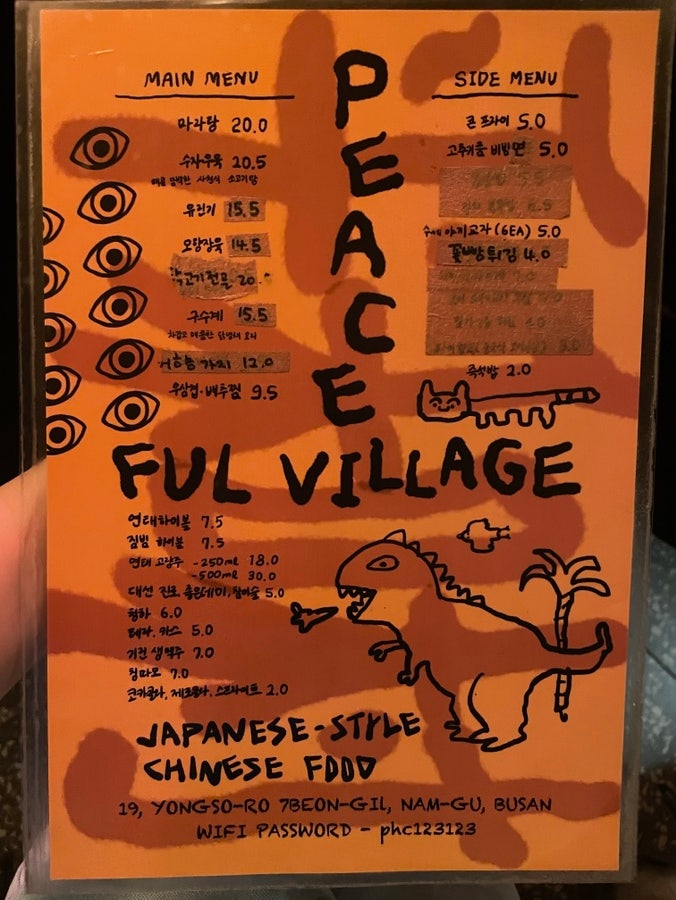 PEACE
FUL VILLAGE
MAIN MENU
마라탕 20.0
수자우육 20.5
매콤 담백한 사천식 소고기탕
유린기 15.5
오향장육 14.5
20.
구수계 15.5
차갑고 매콤한 닭냉채 요리
어향 가지 12.0
우삼겹·배추찜 9.5
SIDE MENU
콘 프라이 5.0
고추기름 비빔면 5.0
수제 야끼교자 (6EA) 5.0
꽃빵튀김 4.0
즉석밥 2.0
연태하이볼 7.5
짐빔 하이볼 7.5
연태 고량주 -250ml 18.0
-500ml 30.0
대선, 진로, 좋은데이, 참이슬 5.0
청하 6.0
테라, 카스 5.0
기린 생맥주 7.0
칭따오 7.0
코카콜라, 제로콜라, 스프라이트 2.0
JAPANESE-STYLE
CHINESE FOOD
19, YONGSO-RO 7BEON-GIL, NAM-GU, BUSAN
WIFI PASSWORD - phc123123